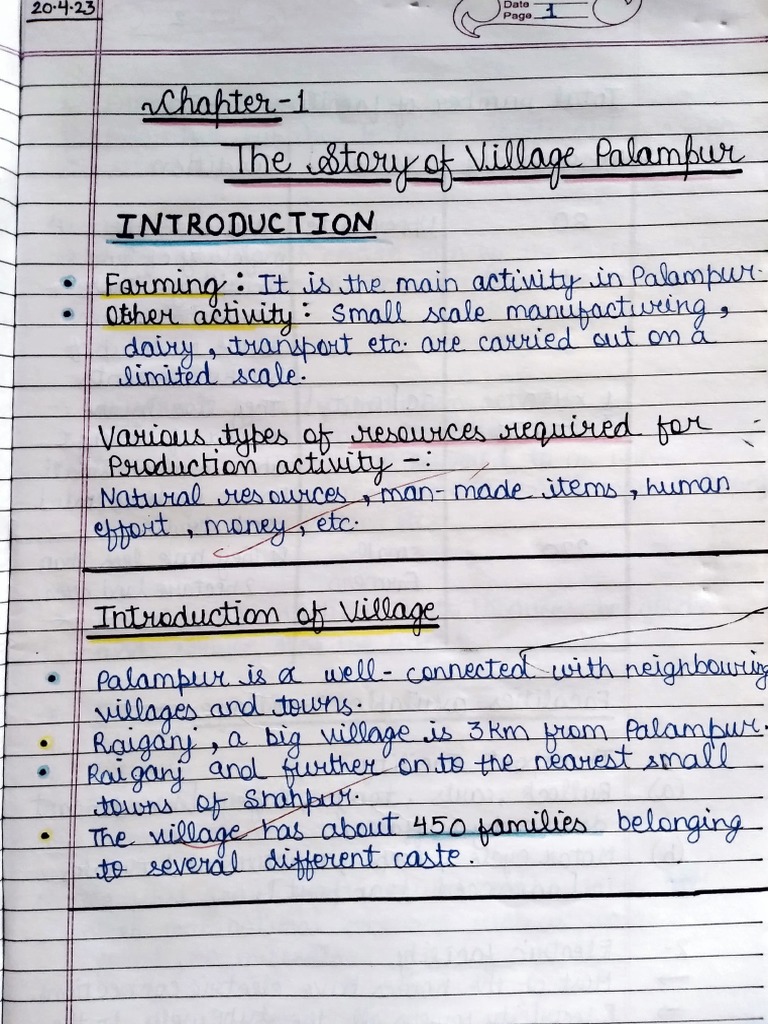 20.4.23
Date
Page 1
Chapter-1
The Story of Village Palampur
INTRODUCTION
• Farming : It is the main activity in Palampur.
• Other activity : Small scale manufacturing ,
dairy , transport etc. are carried out on a
limited scale.
Various types of resources required for
Production activity -:
Natural resources , man-made items , human
effort , money , etc.
Introduction of Village
• Palampur is a well-connected with neighbouring
villages and towns.
• Raiganj , a big village is 3km from Palampur.
• Raiganj and further on to the nearest small
towns of Shahpur.
• The village has about 450 families belonging
to several different caste.